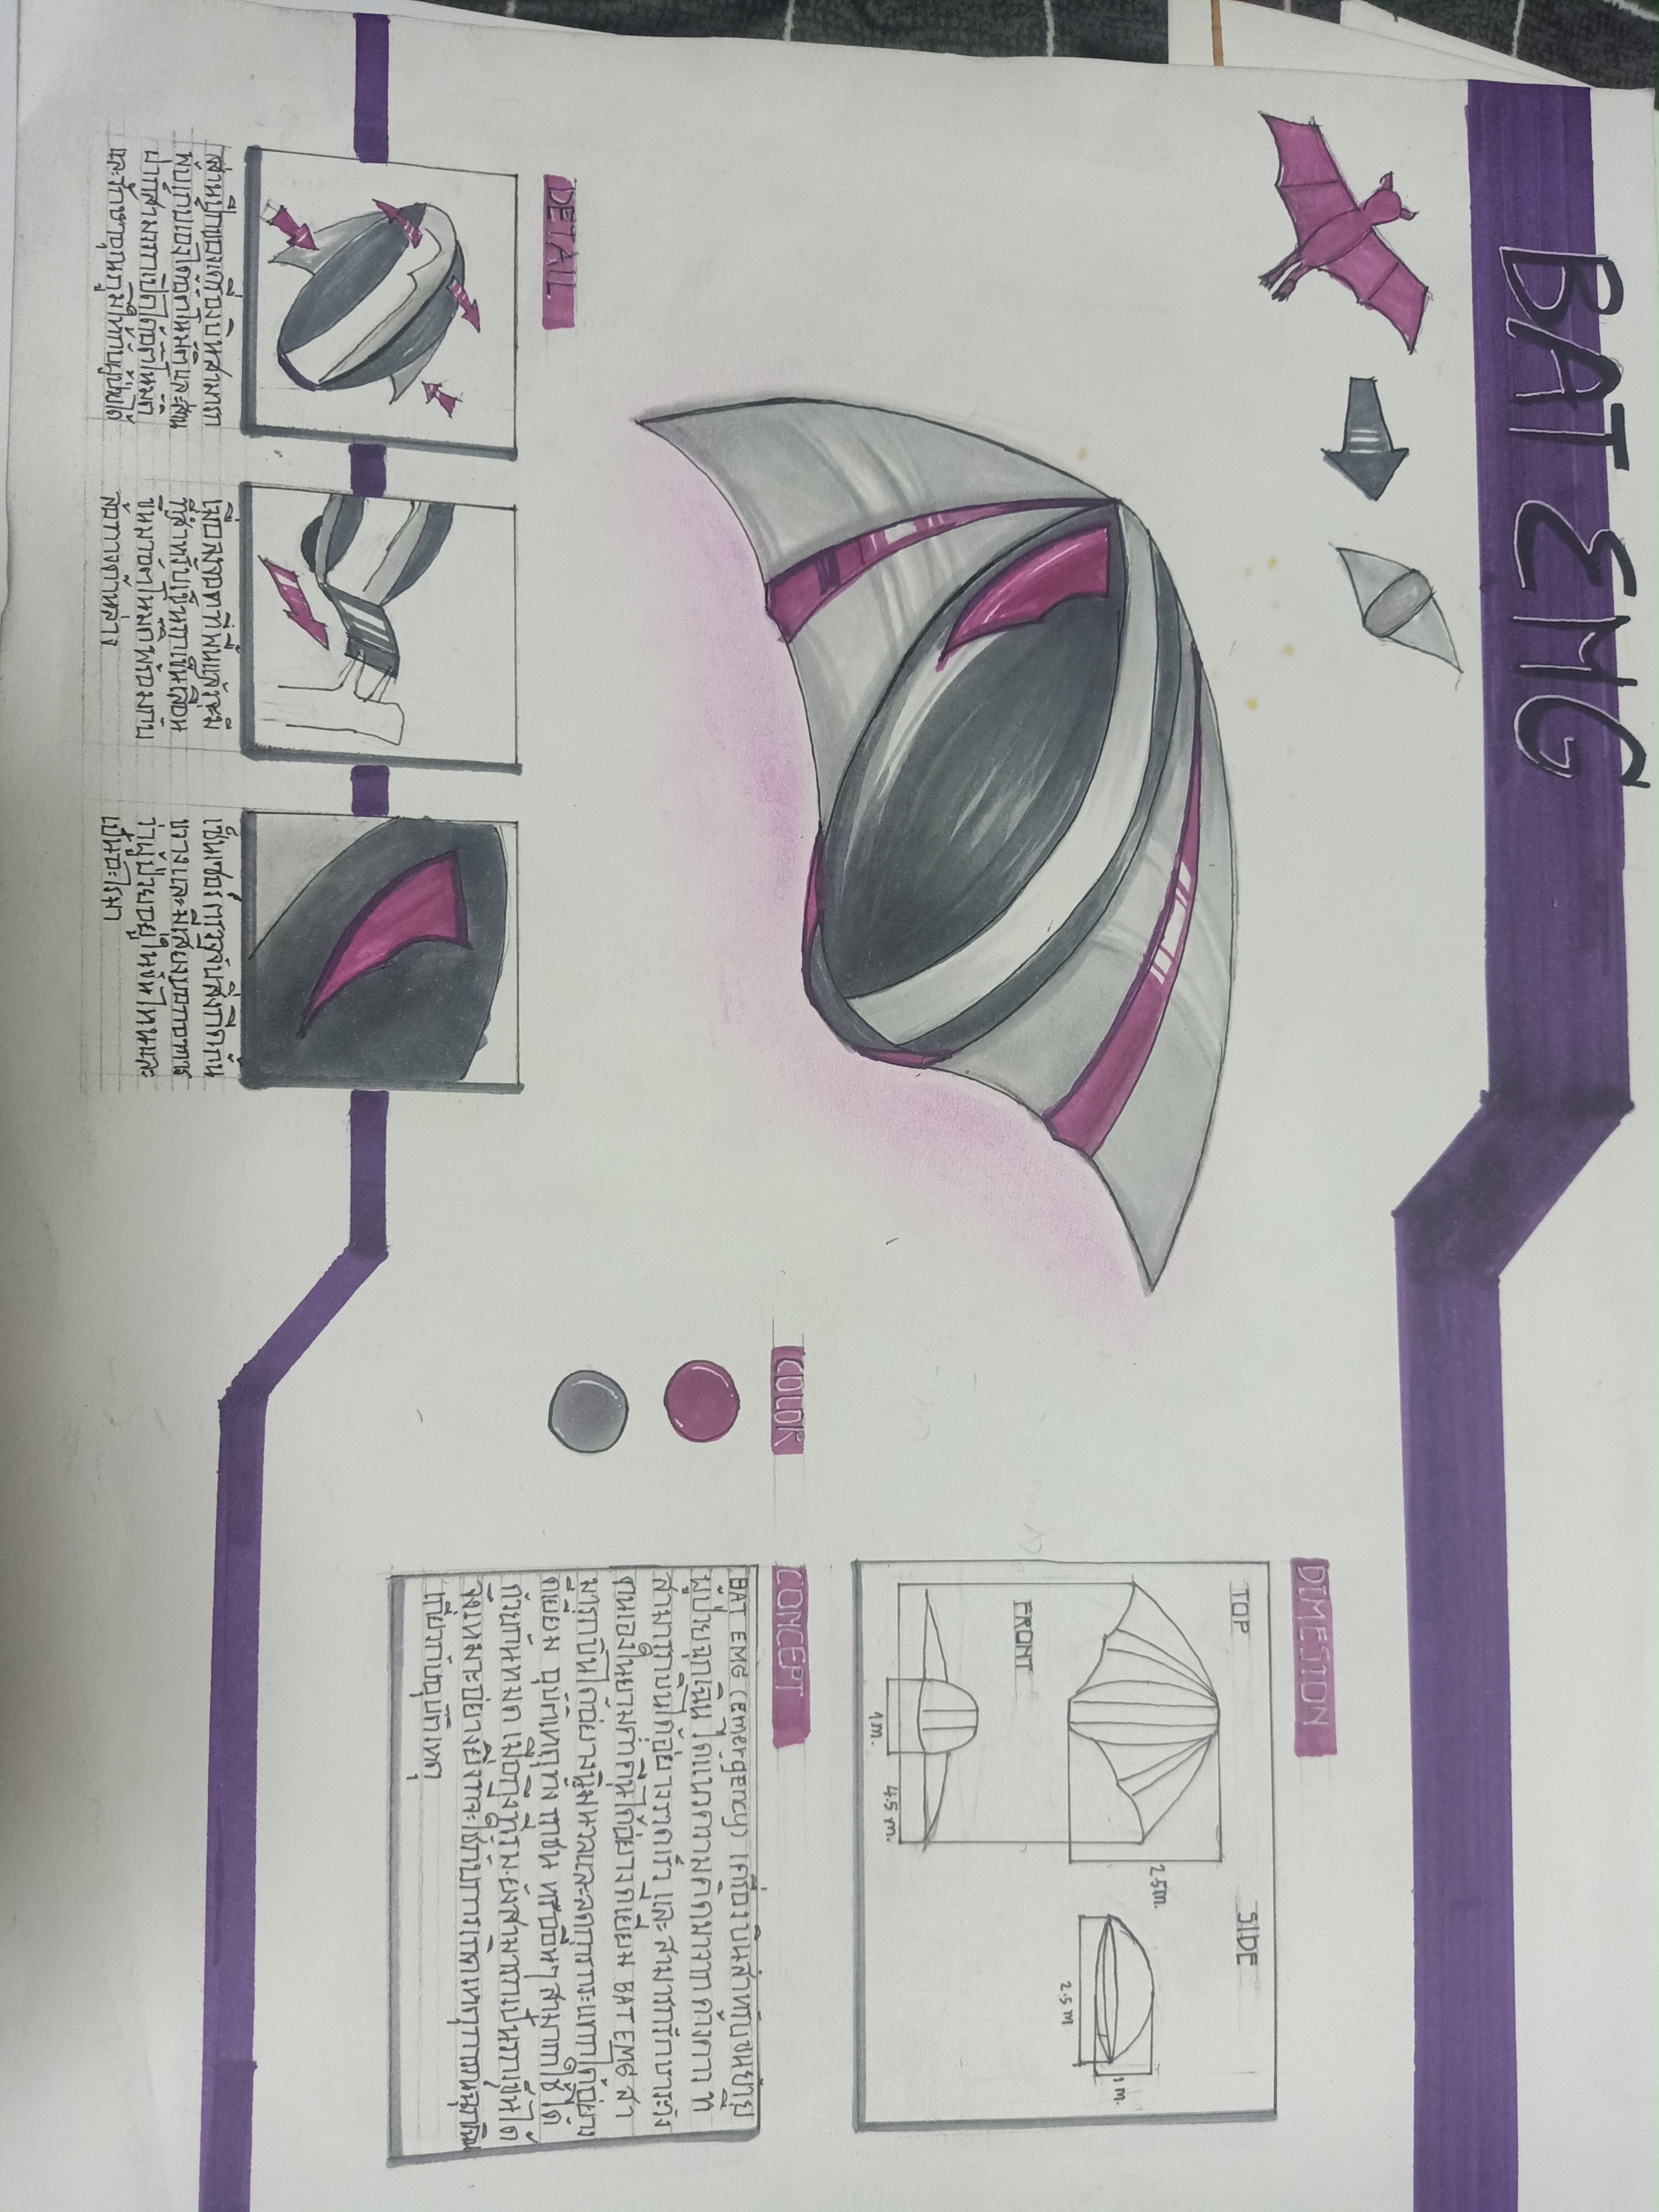 BAT EMG
DIMESION
TOP
SIDE
2.5m.
1 m.
2.5 m
FRONT
1m.
4.5 m.
COLOR
CONCEPT
BAT EMG (emergency) เครื่องบินสำหรับขนย้าย
ผู้ป่วยฉุกเฉิน ได้แนวความคิดมาจาก ค้างคาว ที่
สามารถบินได้อย่างรวดเร็ว และ สามารถรักษาระวัง
ตนเองในยามค่ำคืนได้อย่างดีเยี่ยม BAT EMG สา
มารถบินได้อย่างนิ่มนวลและลดการกระแทกได้อย่าง
ดีเยี่ยม อุบัติเหตุทั้ง รถชน หรืออื่นๆ สามารถใช้ได้
ด้วยกันหมด เมื่อถึงที่รพ.ยังสามารถเป็นรถเข็นได้
จึงเหมาะอย่างยิ่งที่จะใช้กับการเกิดเหตุการณ์ฉุกเฉิน
เกี่ยวกับอุบัติเหตุ
DETAIL
ส่านปีกของเครื่องบินสามารถ
พับเก็บเองได้อัตโนมัติและส่วน
ฝาก็สามารถเปิดได้อัตโนมัติ
และรักษาอุณภูมิให้กับผู้ป่วยได้
เมื่อลงจอดที่พื้นแล้วจะมี
ที่สำหรับเข็นรถเข็นเลื่อน
ขึ้นมาอัตโนมัติพร้อมกับ
ล้อทางด้านล่าง
เซ็นเซอร์ตรวจจับสิ่งกีดกั้น
ขวางและมีเสียงบอกอาการ
ว่าผู้ป่วยอยู่ในขั้นไหนและ
เป็นอะไรมา